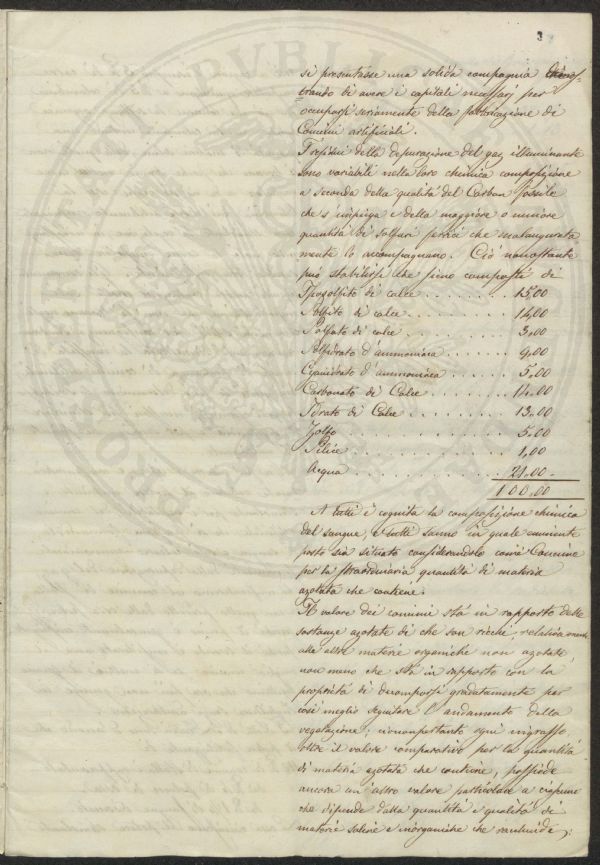 3
si presentasse una solida compagnia dimos-
trando di avere i capitali necessarj per
occuparsi seriamente della fabbricazione di
Concimi artificiali.
I residui della depurazione del gaz illuminante
sono variabili nella loro chimica composizione
a seconda della qualità del Carbon fossile
che s'impiega e della maggiore o minore
quantità di solfuri ferrici che malaugurata
mente lo accompagnano. Ciò nonostante
può stabilirsi che sieno composti di
Iposolfito di calce . . . . . . . 15,00
Solfito di calce . . . . . . . 14,00
Solfato di calce . . . . . . . 3,00
Solfidrato d'ammoniaca . . . . . . . 9,00
Cyanidrato d'ammoniaca . . . . . . 5,00
Carbonato di Calce . . . . . . 14,00
Idrato di Calce . . . . . . . 13,00
Zolfo . . . . . . . 5,00
Silice . . . . . . . 1,00
Acqua . . . . . . . 21,00
100,00
A tutti è cognita la composizione chimica
del sangue, e tutti sanno in quale eminente
posto sia situato considerandolo come Concime
per la straordinaria quantità di materia
azotata che contiene.
Il valore dei concimi stà in rapporto delle
sostanze azotate di che son ricchi, relativamente
alle altre materie organiche non azotate,
non meno che stà in rapporto con la
proprietà di decomporsi gradatamente per
così meglio seguitare l'andamento della
vegetazione; ciononpertanto ogni ingrasso,
oltre il valore comparativo per la quantità
di materia azotata che contiene, possiede
ancora un altro valore particolare a ciascuno
che dipende dalla quantità e qualità di
materie saline e inorganiche che racchiude;